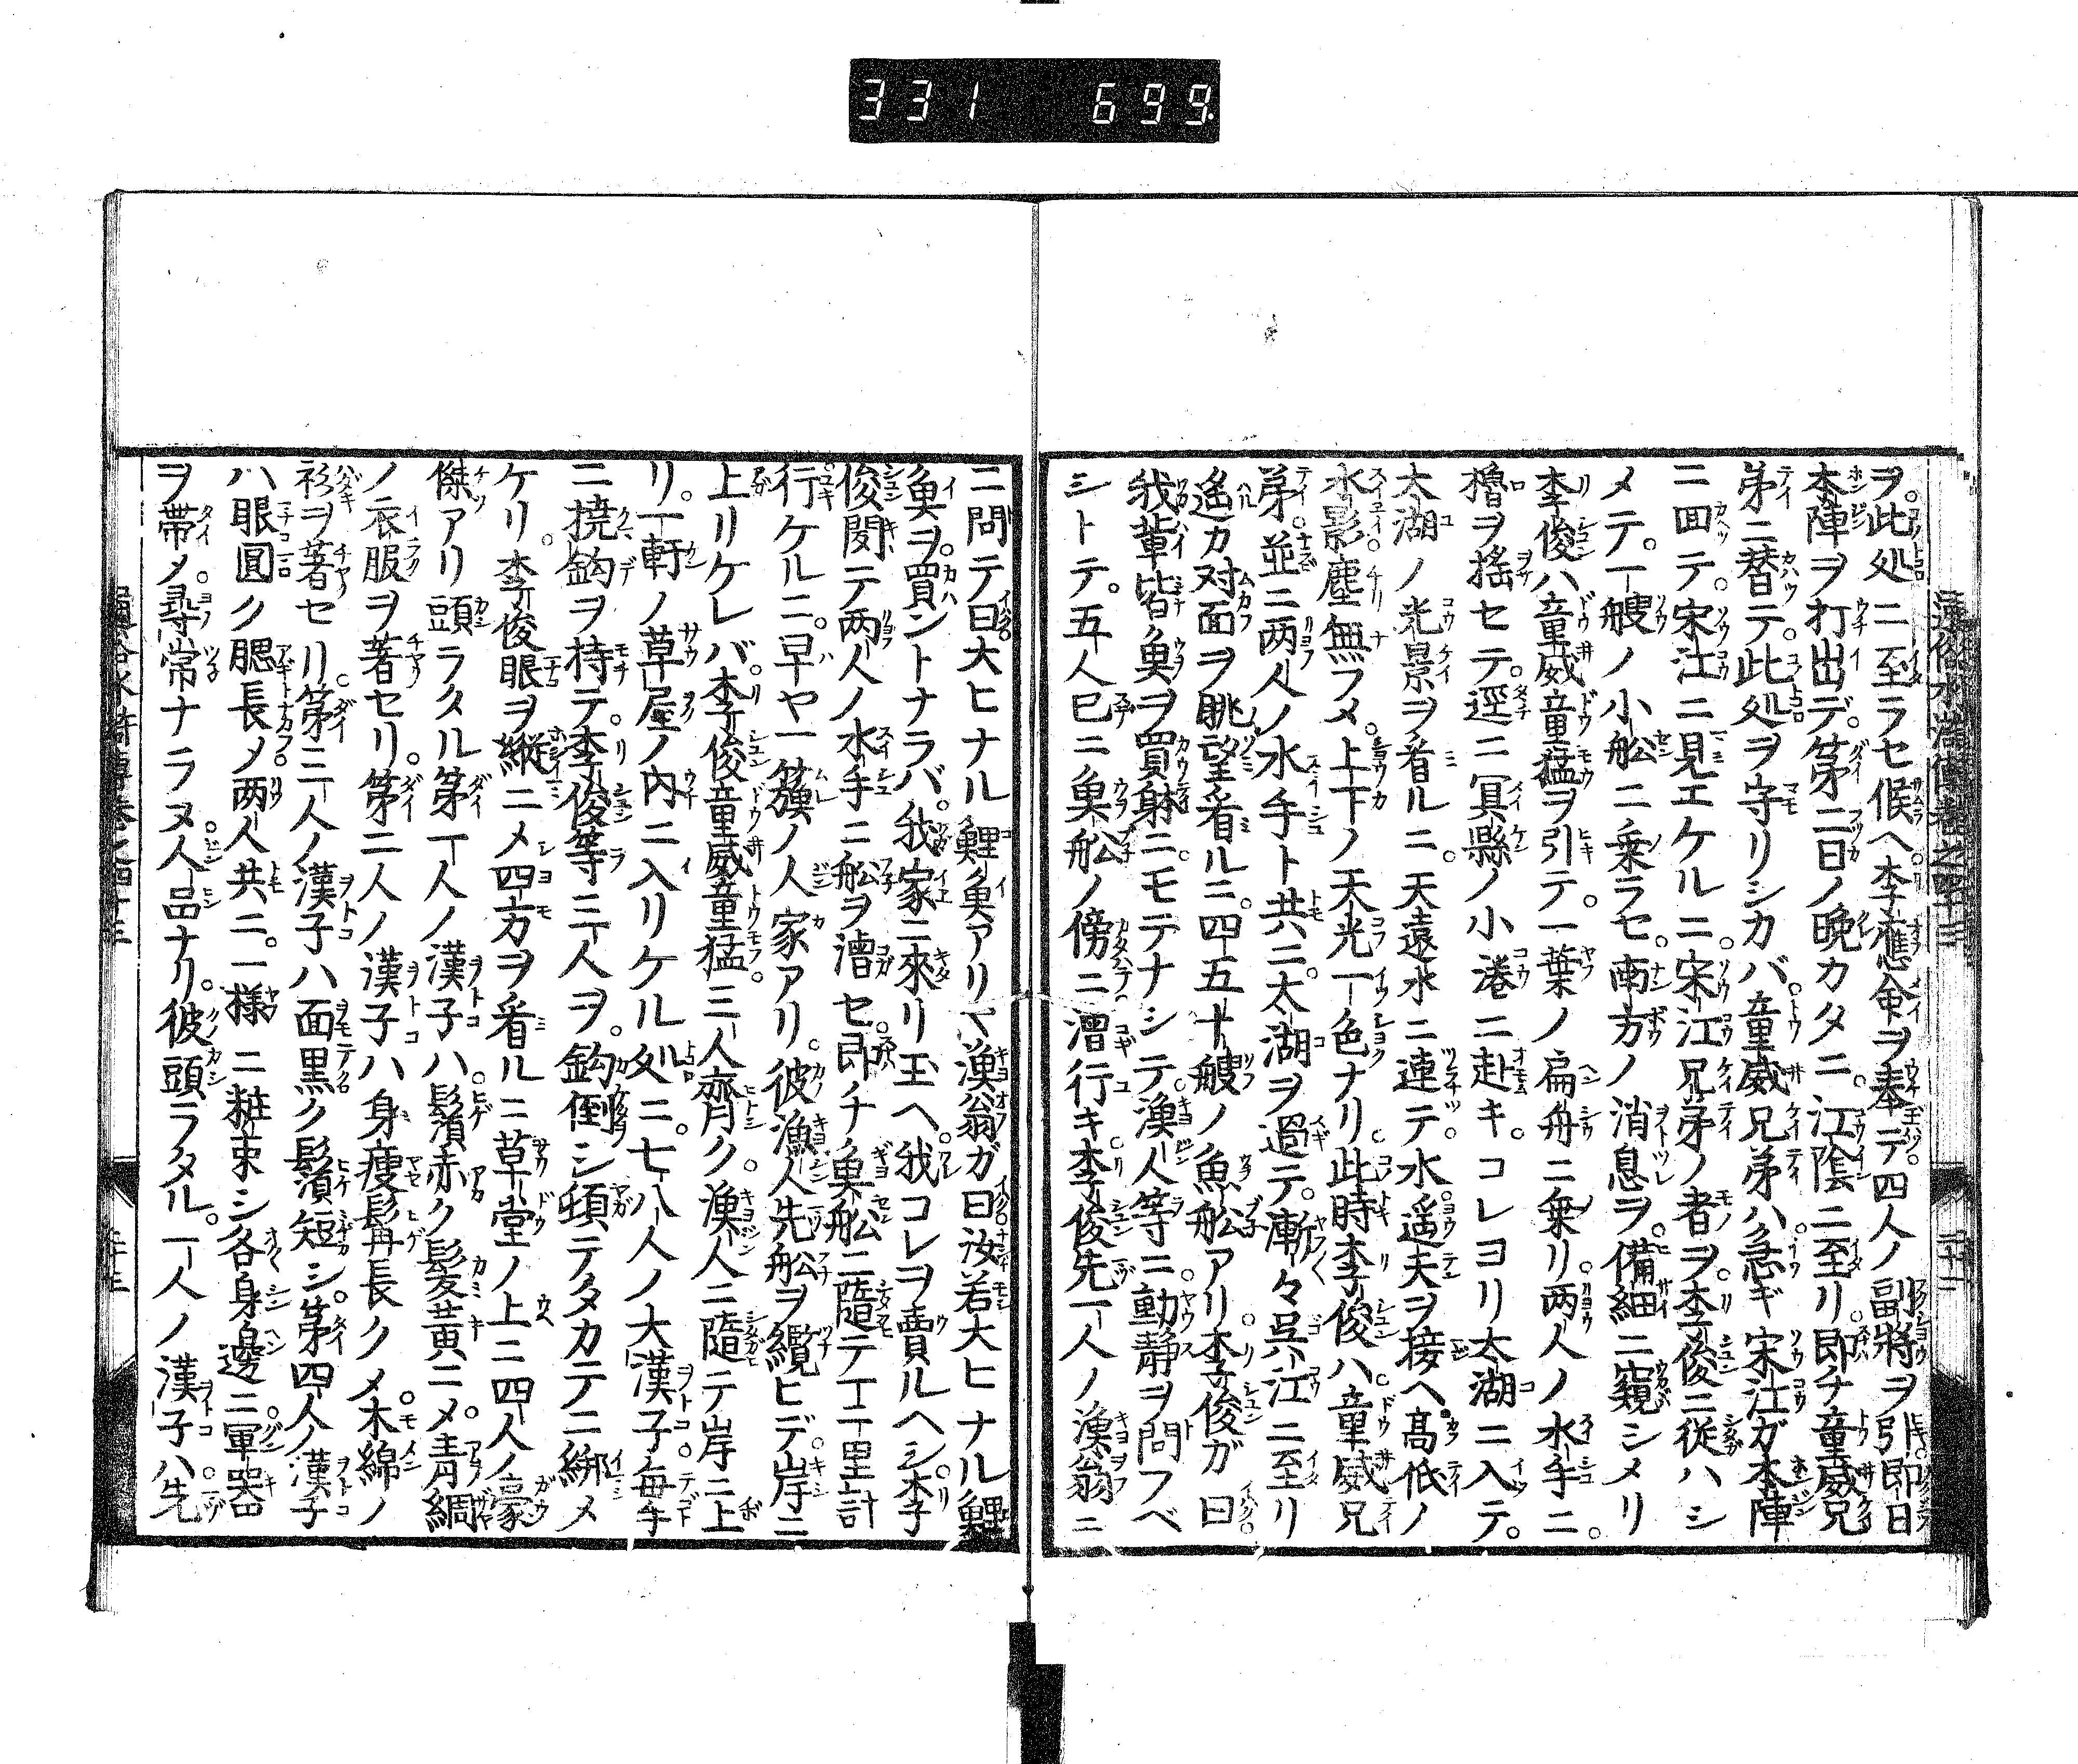 331 699
ヲ。此処ニ至ラセ候ヘ。李應命ヲ奉テ。四人ノ副將ヲ引。即日
本陣ヲ打出デ。第二日ノ晩カタニ。江陰ニ至リ。即チ童威兄
弟ニ替テ。此処ヲ守リシカバ。童威兄弟ハ。急ギ宋江ガ本陣
ニ回テ。宋江ニ見エケルニ。宋江兄弟ノ者ヲ。李俊ニ従ハシ
メテ。一艘ノ小舩ニ乗ラセ。南方ノ消息ヲ。備細ニ窺シメリ
李俊ハ童威童猛ヲ引テ。一葉ノ扁舟ニ乗リ。両人ノ水手ニ。
櫓ヲ揺セテ。逕ニ冝縣ノ小港ニ赴キ。コレヨリ太湖ニ入テ。
太湖ノ光景ヲ看ルニ。天遠水ニ連テ。水遥天ヲ接ヘ。髙低ノ
水影塵無フメ。上下ノ天光一色ナリ。此時李俊ハ。童威兄
弟。並ニ両人ノ水手ト共ニ。太湖ヲ過テ。漸々呉江ニ至リ
遙カ対面ヲ眺望看ルニ。四五十艘ノ魚舩アリ。李俊ガ曰
我輩皆魚ヲ買躰ニ。モテナシテ。漁人等ニ動静ヲ問フベ
シトテ。五人已ニ魚舩ノ傍ニ。漕行キ。李俊先一人ノ漁翁ニ
ニ問テ曰大ヒナル鯉魚アリヤ漁翁ガ曰汝若大ヒナル鯉
魚ヲ。買ントナラバ。我家ニ來リ玉ヘ。我コレヲ賣ルヘシ。李
俊聞テ両人ノ水手ニ舩ヲ漕セ。即チ魚舩ニ隨テ一里計
行ケルニ。早ヤ一簇ノ人家アリ。彼漁人先舩ヲ纜ヒデ。岸ニ
上リケレバ。李俊童威童猛。三人齊ク。漁人ニ隨テ岸ニ上
リ。一軒ノ草屋ノ内ニ入リケル処ニ。七八人ノ大漢子。毎手
ニ撓鈎ヲ持テ。李俊等三人ヲ。鈎倒シ頓テタカテニ綁メ
ケリ。李俊眼ヲ縦ニメ四方ヲ看ルニ草堂ノ上ニ四人ノ豪
傑アリ頭ラタル第一人ノ漢子ハ。鬚赤ク髪黄ニメ。青綢
ノ衣服ヲ著セリ。第二人ノ漢子ハ身痩髯長クメ。木綿ノ
衫ヲ著セリ。第三人ノ漢子ハ面黒ク鬚短シ。第四人ノ漢子
ハ眼圓ク腮長ノ両人共ニ。一様ニ粧束シ各身邊ニ軍器
ヲ帶メ。尋常ナラヌ人品ナリ。彼頭ラタル。一人ノ漢子ハ先